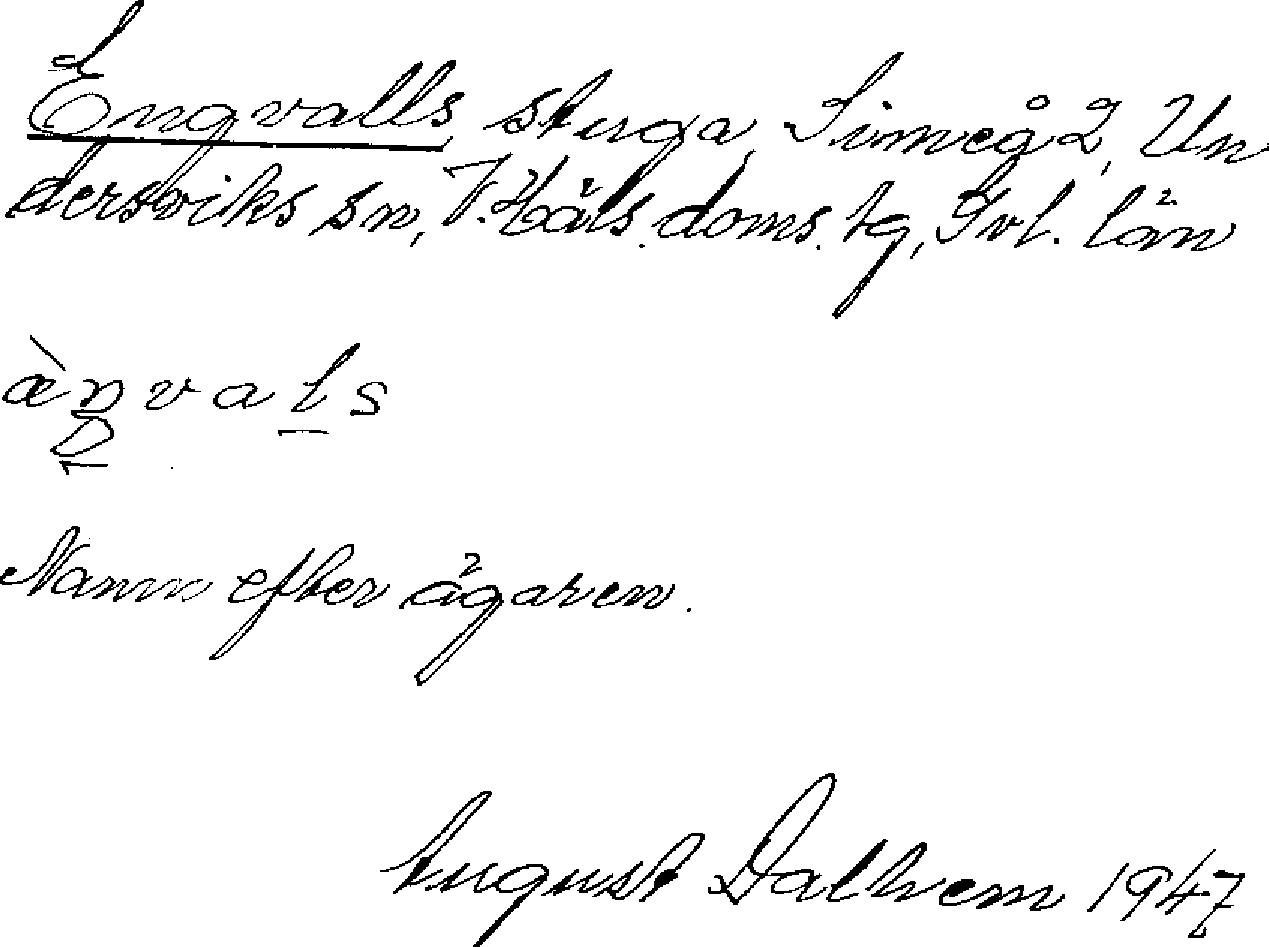 Engvalls, stuga, Simeå 2, Un
dersviks sn, V. Häls. doms. tg, Gvl. län
Namn efter ägaren.
August Dalhem 1947